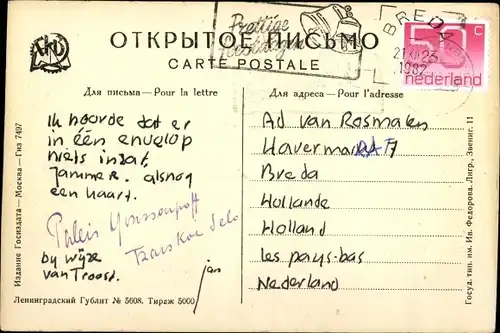 Prettige
BREDA
21.XII.23
1982
50 c
nederland
ОТКРЫТОЕ ПИСЬМО
CARTE POSTALE
Для письма — Pour la lettre
Для адреса — Pour l'adresse
Ik hoorde dat er
in één envelop
niets inzat,
Jammer. alsnog
een kaart.
Paleis Youssoupoff
Tzarskoe Selo
by wijze
van Troost.
jan
Ad van Rosmalen
Havermarkt 7
Breda
Hollande
Holland
les pays-bas
Nederland
Издание Госиздата — Москва — Гиз 7497
Ленинградский Гублит № 5608. Тираж 5000
Госуд. тип. им. Ив. Федорова. Лнгр., Звениг. 11